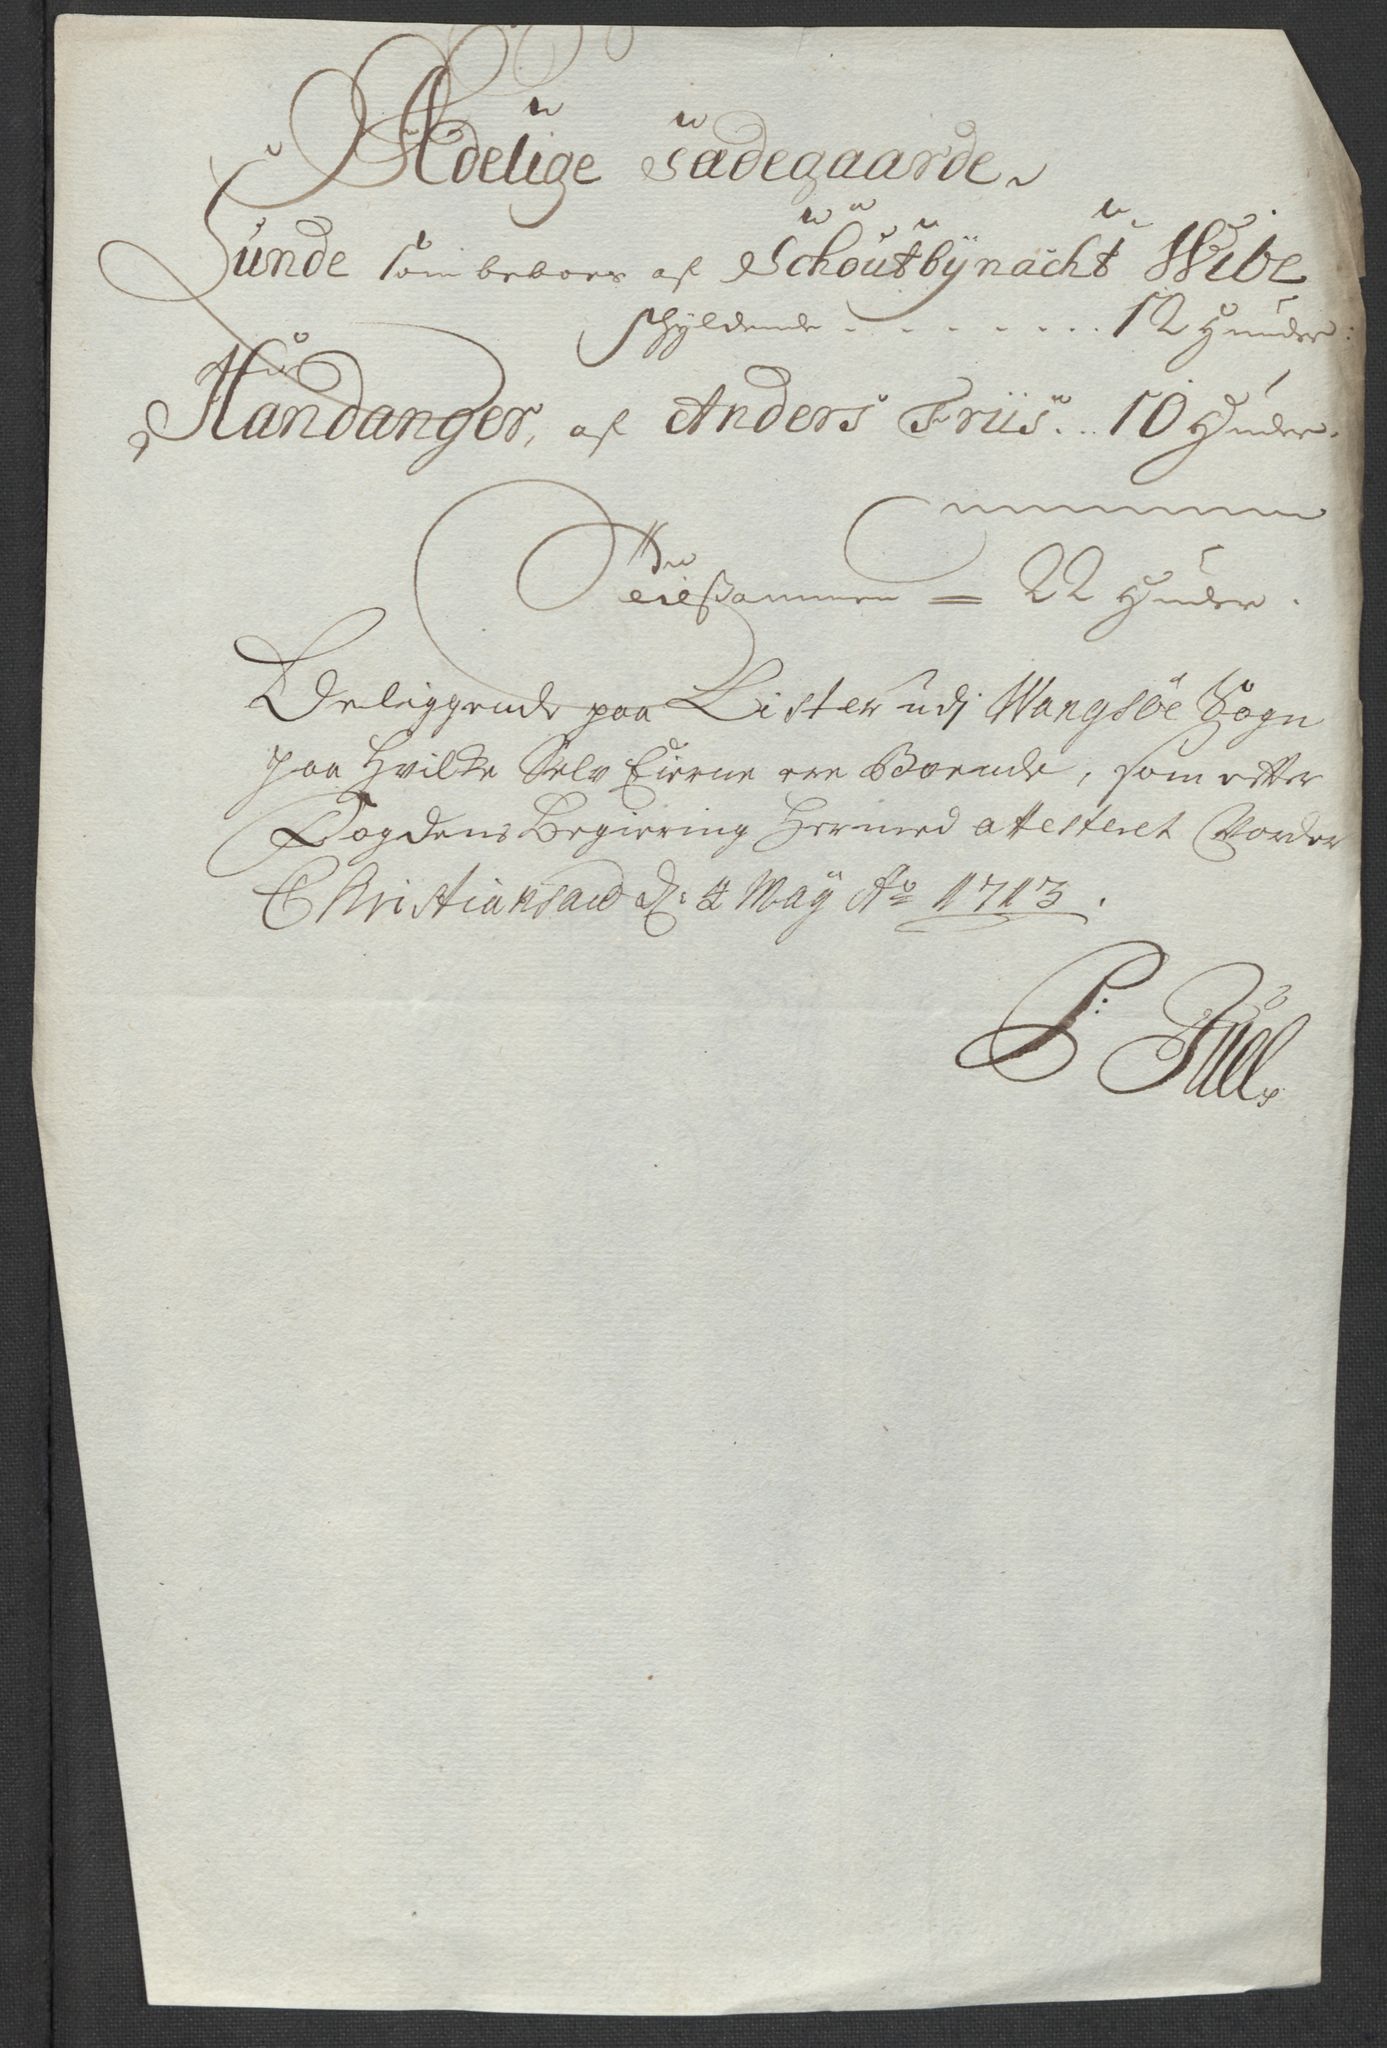 Adelige Sädegaarde
Sunde som beboes af Schoutbÿnacht Wibe
schÿldende - - - - - - - 12 Huuder:
Handanger, af Anders Friis .. 10 Huder.
Tilsammen = 22 Huder.
Beliggende paa Lister udj Wangsöe Sogn
paa Hvilke Selv Eierne ere Boende, som efter
Fogdens Begiering Hermed attesteret Vorder
Christiansand d: 4 Maÿ Ao 1713.
P: Juel